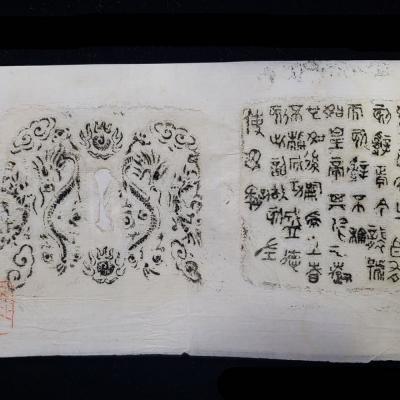 皆有
刻辭焉今襲號
而刻辭不稱
始皇帝其於久遠
也如後嗣為之者
不稱成功盛德
刻此詔故刻左
使毋疑